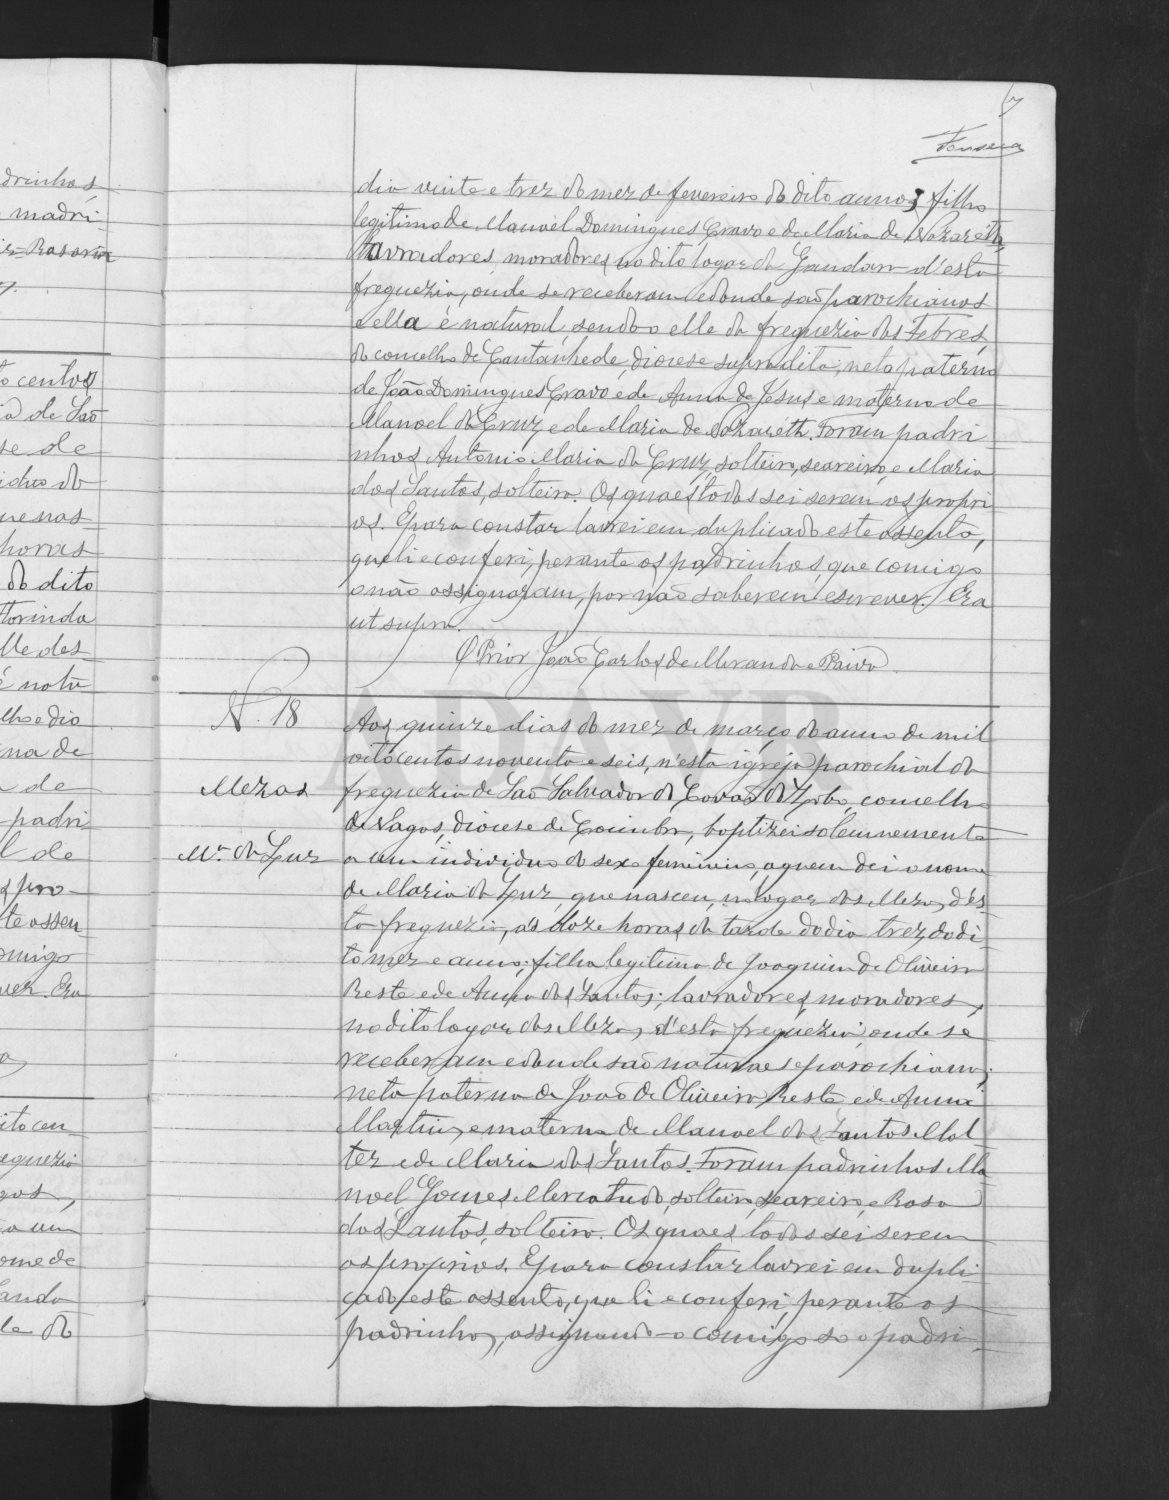 7
Fonseca
drinhos
madri
Rosaria
to centos
ia de São
se de
iduo do
ue nas
horas
do dito
Florinda
lle des
é natu
lho e dio
na de
a de
padri
l de
pro
te assen
omigo
ver. Era
ito cen
eguezia
gos,
a um
ome de
ando
le do
dia vinte e trez do mez de fevereiro do dito anno; filho
legitimo de Manoel Domingues Cravo e de Maria de Nazaréth,
lavradores, moradores no dito logar da Gandara d'esta
freguezia, onde se receberam e donde são parochianos
e ella é natural, sendo o elle da freguezia das Febres,
do concelho de Cantanhede, diocese supradita; neto paterno
de João Domingues Cravo e de Anna de Jesus e materno de
Manoel da Cruz e de Maria de Nazaréth. Foram padri
nhos Antonio Maria da Cruz, solteiro, seareiro, e Maria
dos Santos, solteira. Os quaes todos sei serem os propri
os. E para constar lavrei em duplicado este assento,
que li e conferi, perante os padrinhos, que comigo
o não assignaram, por não saberem escrever. Era
ut supra.
O Prior João Carlos de Miranda e Paiva.
N. 18
Mezas
M.ª da Luz
Aos quinze dias do mez de março do anno de mil
oitocentos noventa e seis, n'esta igreja parochial da
freguezia de São Salvador do Covão do Lobo, concelho
de Vagos, diocese de Coimbra, baptizei solemnemente
a um individuo do sexo feminino, a quem dei o nome
de Maria da Luz, que nasceu, no logar das Mezas, d'es
ta freguezia, ás doze horas da tarde do dia trez, do di
to mez e anno; filha legitima de Joaquim de Oliveira
Reste e de Anna dos Santos; lavradores, moradores,
no dito logar das Mezas, d'esta freguezia, onde se
receberam e donde são naturaes e parochianos;
neta paterna de João de Oliveira Reste e de Anna
Martins, e materna de Manoel dos Santos Mal
ter e de Maria dos Santos. Foram padrinhos Ma
noel Gomes Mercatudo, solteiro, seareiro, e Rosa
dos Santos, solteira. Os quaes todos sei serem
os proprios. E para constar lavrei em dupli
cado este assento, que li e conferi, perante os
padrinhos, assignando-o comigo só o padri
ADAVR